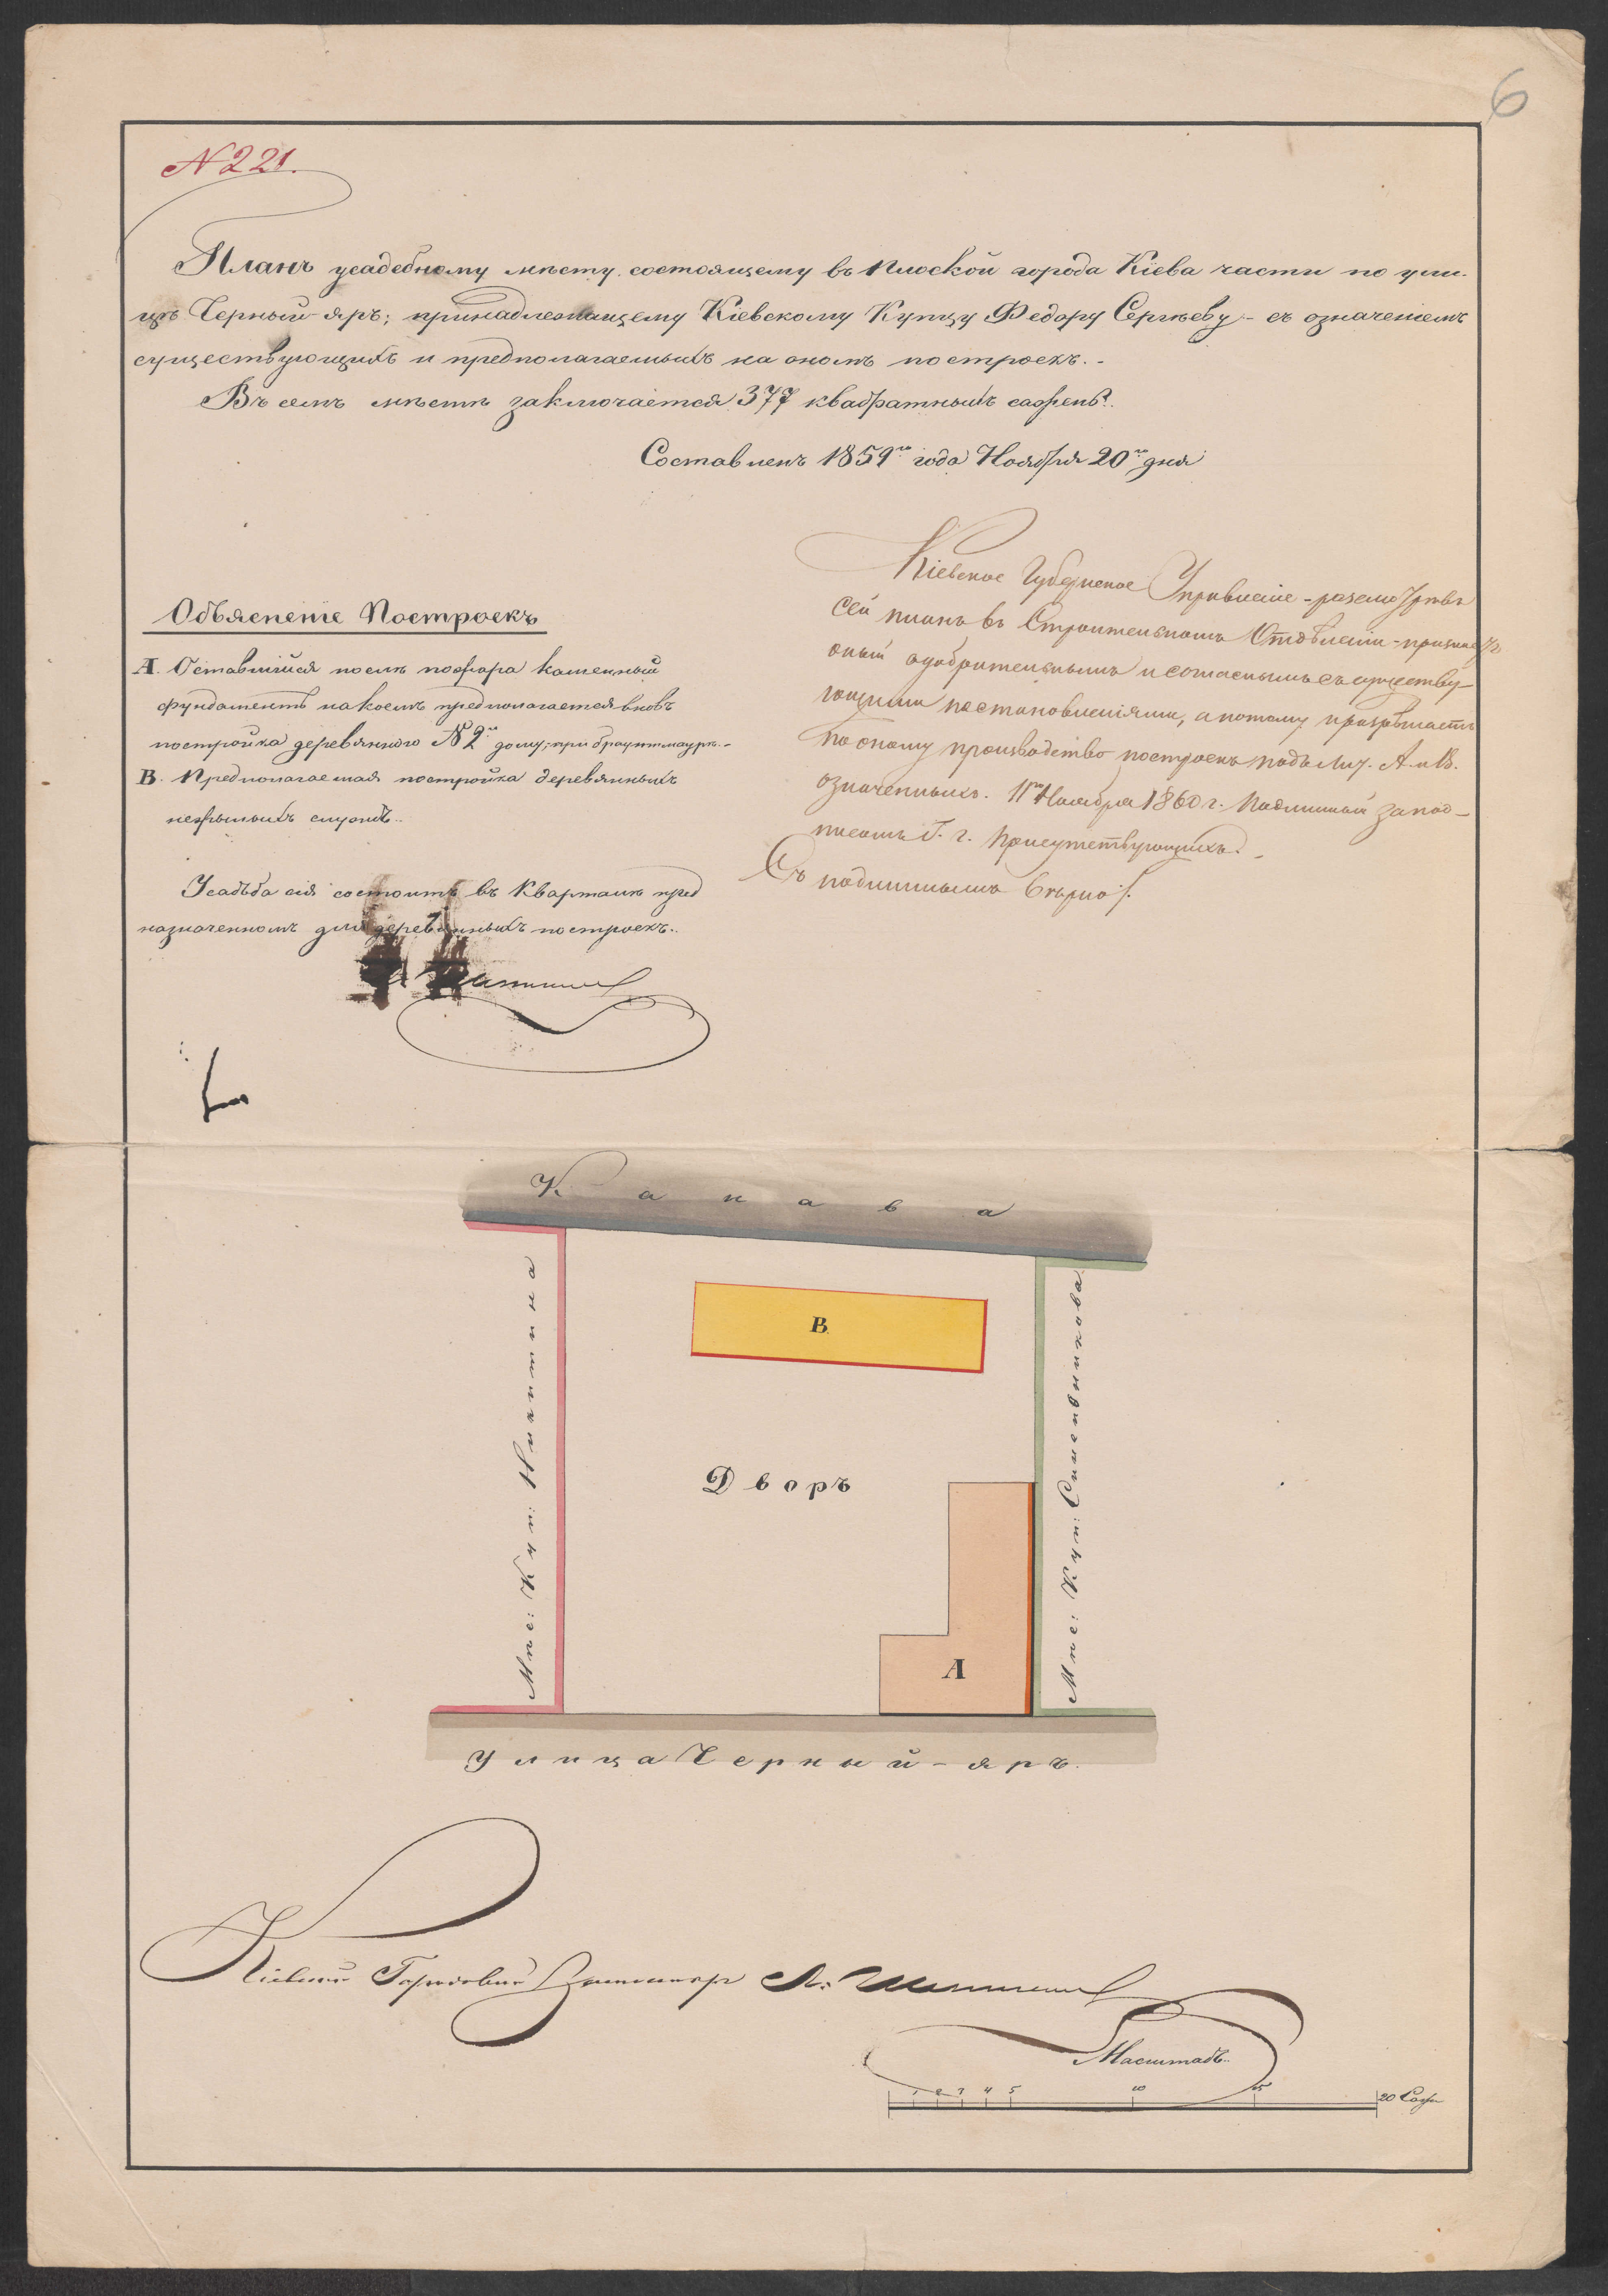 6
N 221.
Планъ усадебному мѣсту состоящему въ Плоской города Кіева части по ули-
цѣ Черный-яръ; принадлежащему Кіевскому Купцу Федору Сергѣеву - съ означеніемъ
существующихъ и предполагаемыхъ на ономъ построекъ. -
Въ семъ мѣстѣ заключается 377 квадратныхъ сажень.
Составленъ 1859го года Ноября 20го дня
Кіевское Губернское Управленіе - разсмотрѣвъ
сей планъ въ Строительномъ Отдѣленіи - признаетъ
оный одобрительнымъ и согласнымъ съ существу-
ющими постановленіями, а потому разрѣшаетъ
по оному производство построекъ подъ лит. А и В.
означенныхъ. 11го Ноября 1860 г. Подлинный за под-
писомъ Г. г. Присутствующихъ.
Съ подлиннымъ вѣрно.
Объясненіе Построекъ
А. Оставшійся послѣ пожара каменный
фундаментъ на коемъ предполагается вновь
постройка деревяннаго № 2го дому, при брауптмаурѣ.-
В. Предполагаемая постройка деревянныхъ
нежилыхъ службъ..
Усадьба сія состоитъ въ Кварталѣ пред
назначенномъ для деревянныхъ построекъ..
Канава
Мѣс: Куп: Никитина
В.
Мѣс: Куп:
Дворъ
А
Улица Черный-яръ.
Кіевскій Городовой
Масштабъ..
1 2 3 4 5 10 15 20 Саж